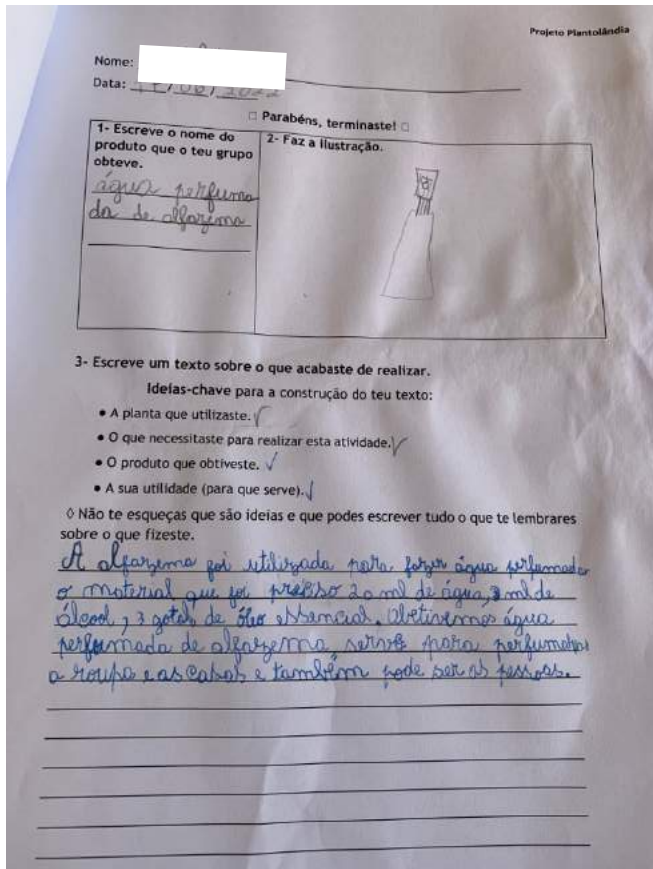 Projeto Plantolândia
Nome:
Data: /06/2022
□ Parabéns, terminaste! □
1- Escreve o nome do
produto que o teu grupo
obteve.
água perfuma
da de alfazema
2- Faz a ilustração.
3- Escreve um texto sobre o que acabaste de realizar.
Ideias-chave para a construção do teu texto:
• A planta que utilizaste. √
• O que necessitaste para realizar esta atividade. √
• O produto que obtiveste. √
• A sua utilidade (para que serve). √
◊ Não te esqueças que são ideias e que podes escrever tudo o que te lembrares
sobre o que fizeste.
A alfazema foi utilizada para fazer água perfumada
o material que foi preciso 20 ml de água, 3 ml de
álcool, 3 gotas de óleo essencial. Obtivemos água
perfumada de alfazema, serve para perfumar
a roupa e as casas e também pode ser as pessoas.